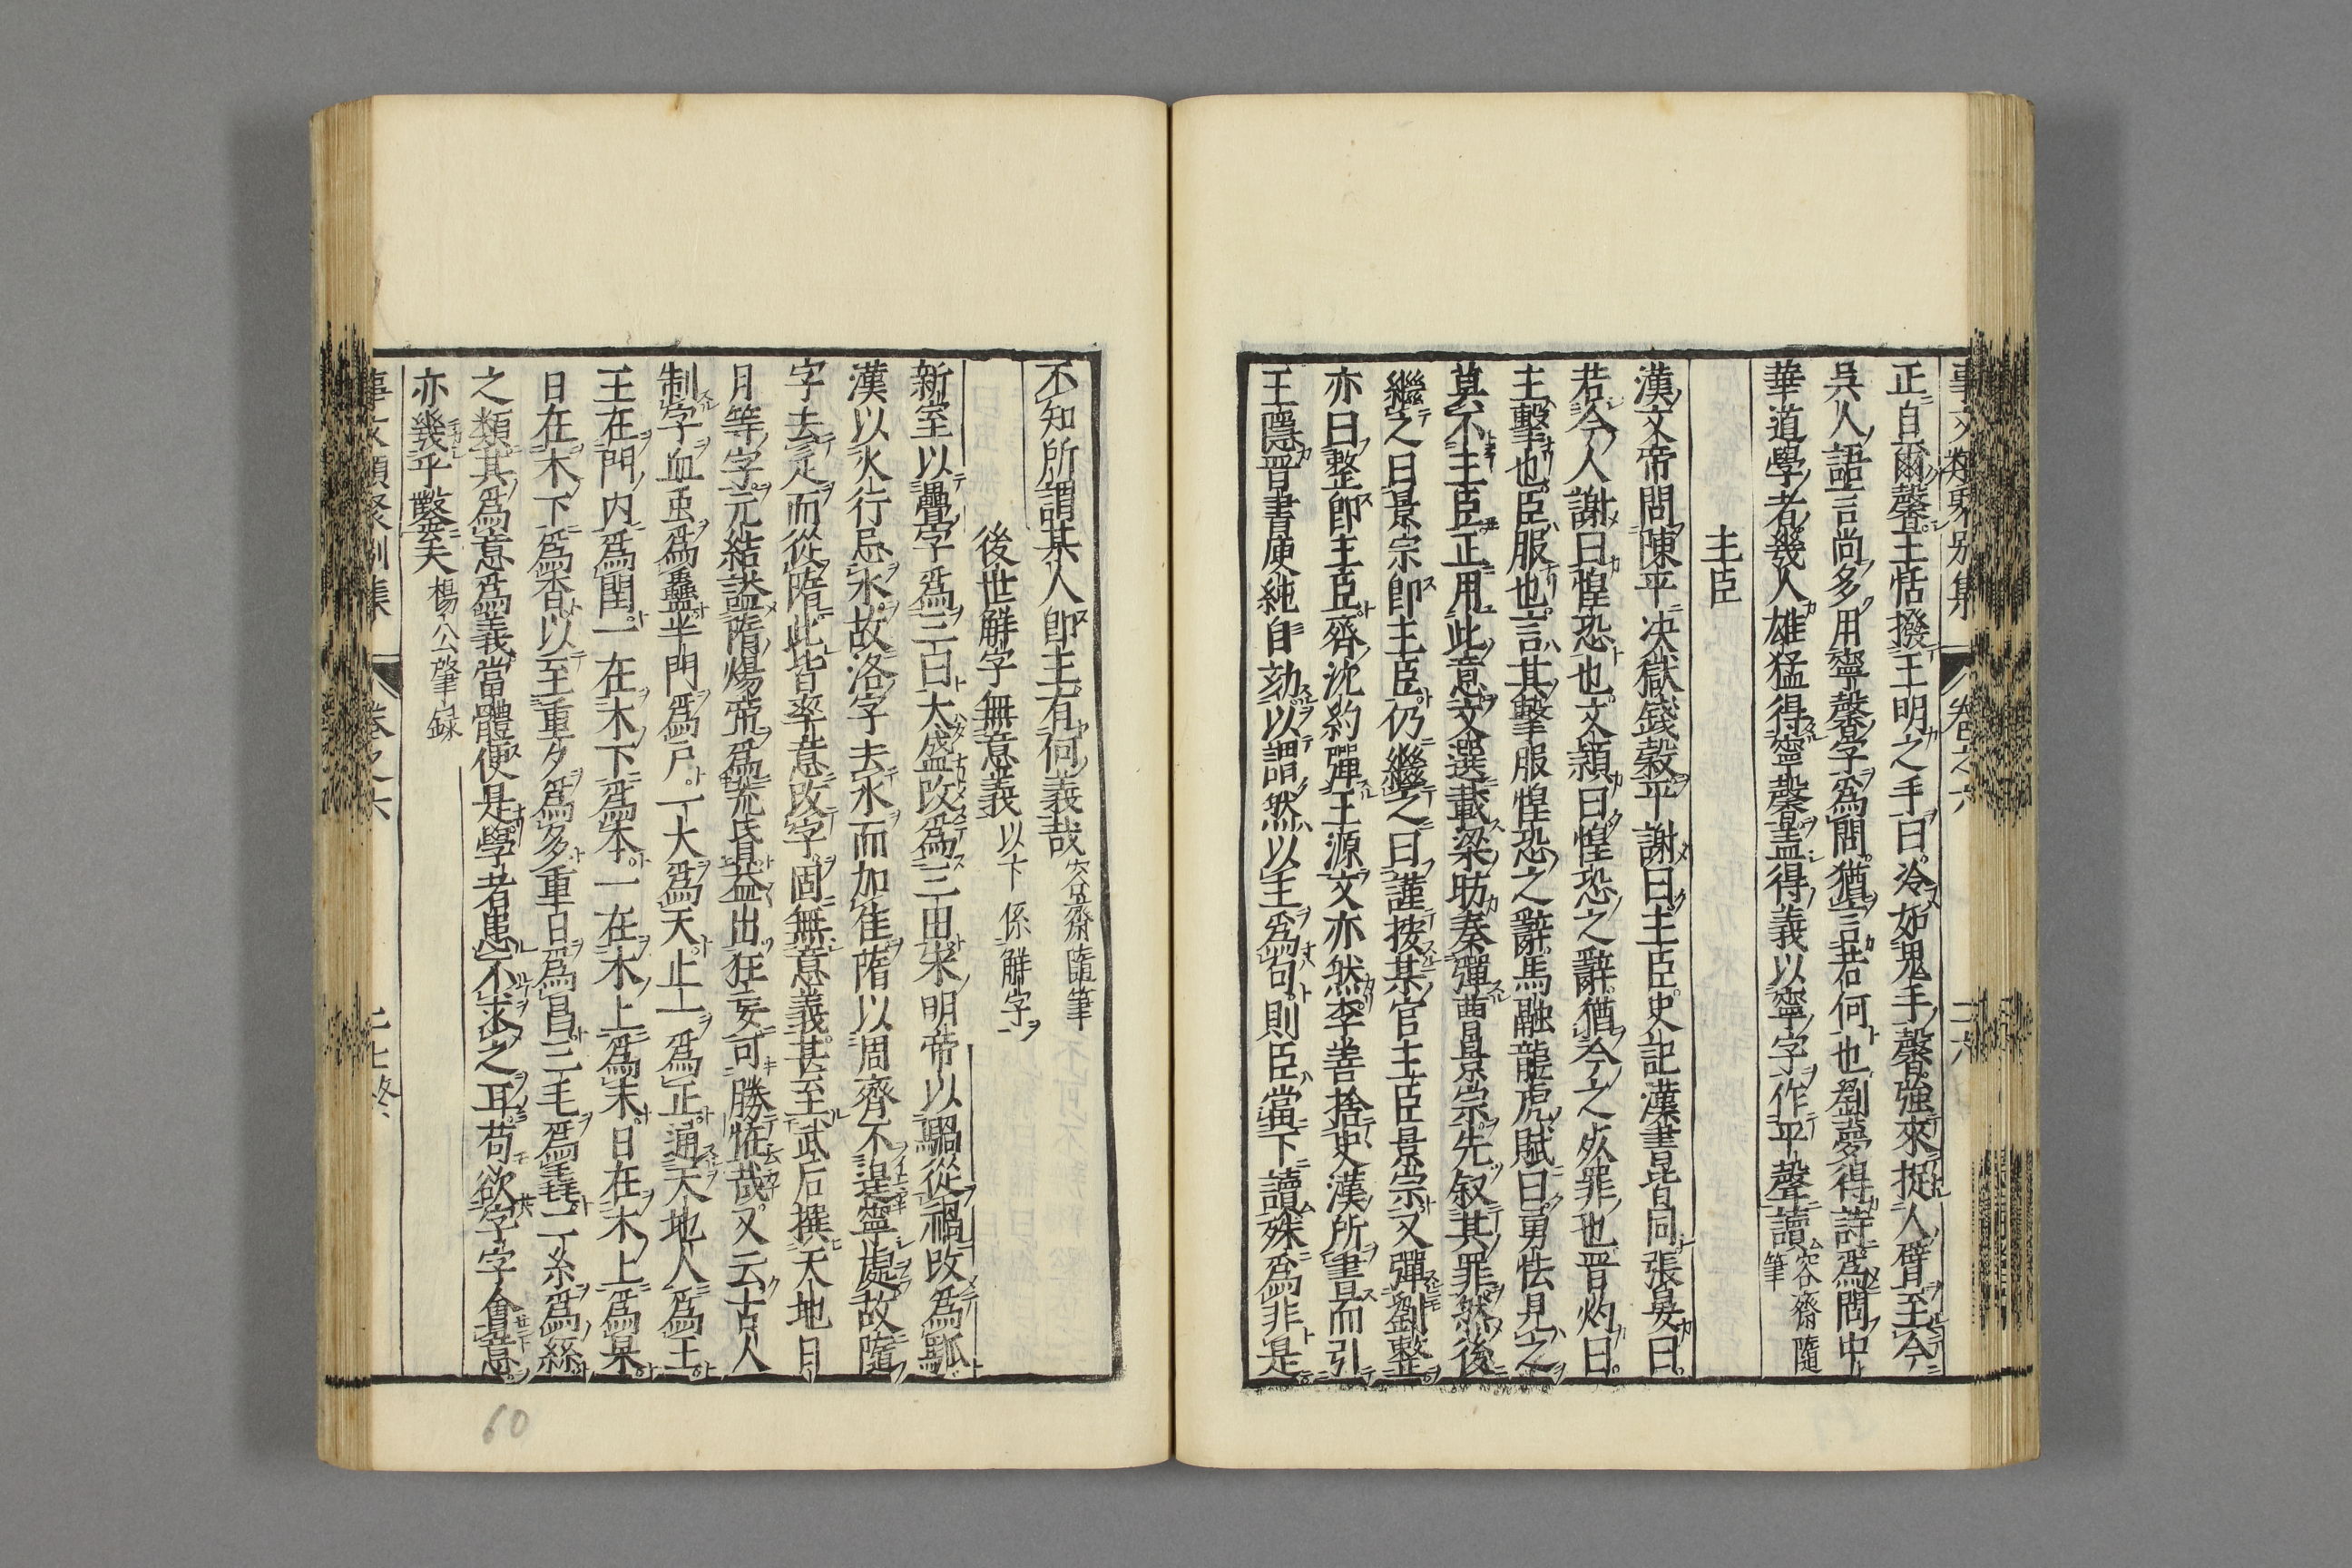 事文類聚別集 卷之六 二六
正自爾馨王恬撥王明之手曰冷如鬼手馨強來捉人臂至今
吳人語言尚多用寧馨字爲問猶言若何也劉夢得詩爲問中
華道學者幾人雄猛得寧馨盖得義以寧字作平聲讀容齋隨筆
主臣
漢文帝問陳平决獄錢穀平謝曰主臣史記漢書皆同張晏曰
若今人謝曰惶恐也文頴曰惶恐之辭猶今之死罪也晋灼曰
主擊也臣服也言其擊服惶恐之辭馬融龍虎賦曰勇怯見之
莫不主臣正用此意文選載梁昉奏彈曹景宗先叙其罪然後
繼之曰景宗即主臣仍繼之曰謹按某官主臣景宗又彈劉整
亦曰整即主臣齊沈約彈王源文亦然李善捨史漢所書而引
王隱晋書庾純自劾以謂然以主爲句則臣當下讀殊爲非是
不知所謂某人即主有何義哉容齋隨筆
後世觧字無意義以下係觧字
新室以疊字爲三日大盛改爲三田宋明帝以騧從禍改爲𩢍
漢以火行忌水故洛字去水而加隹隋以周齊不遑寧處故隨
字去辶而從隋此皆率意改字固無意義甚至武后撰天地日
月等字元結謚隋煬帝爲荒民昏益出狂妄可勝恠哉又云古人
制字血䖝爲蠱半門爲戶一大爲天止一爲正通天地人爲王
王在門内爲閏一在木下爲本一在木上爲末日在木上爲杲
日在木下爲杳以至重夕爲多重日爲昌三毛爲毳二糸爲絲
之類其爲意爲義當體便是學者患不求之耳苟欲字字會意
亦幾乎鑿矣楊公筆録
事文類聚別集 卷之六 二七終
60